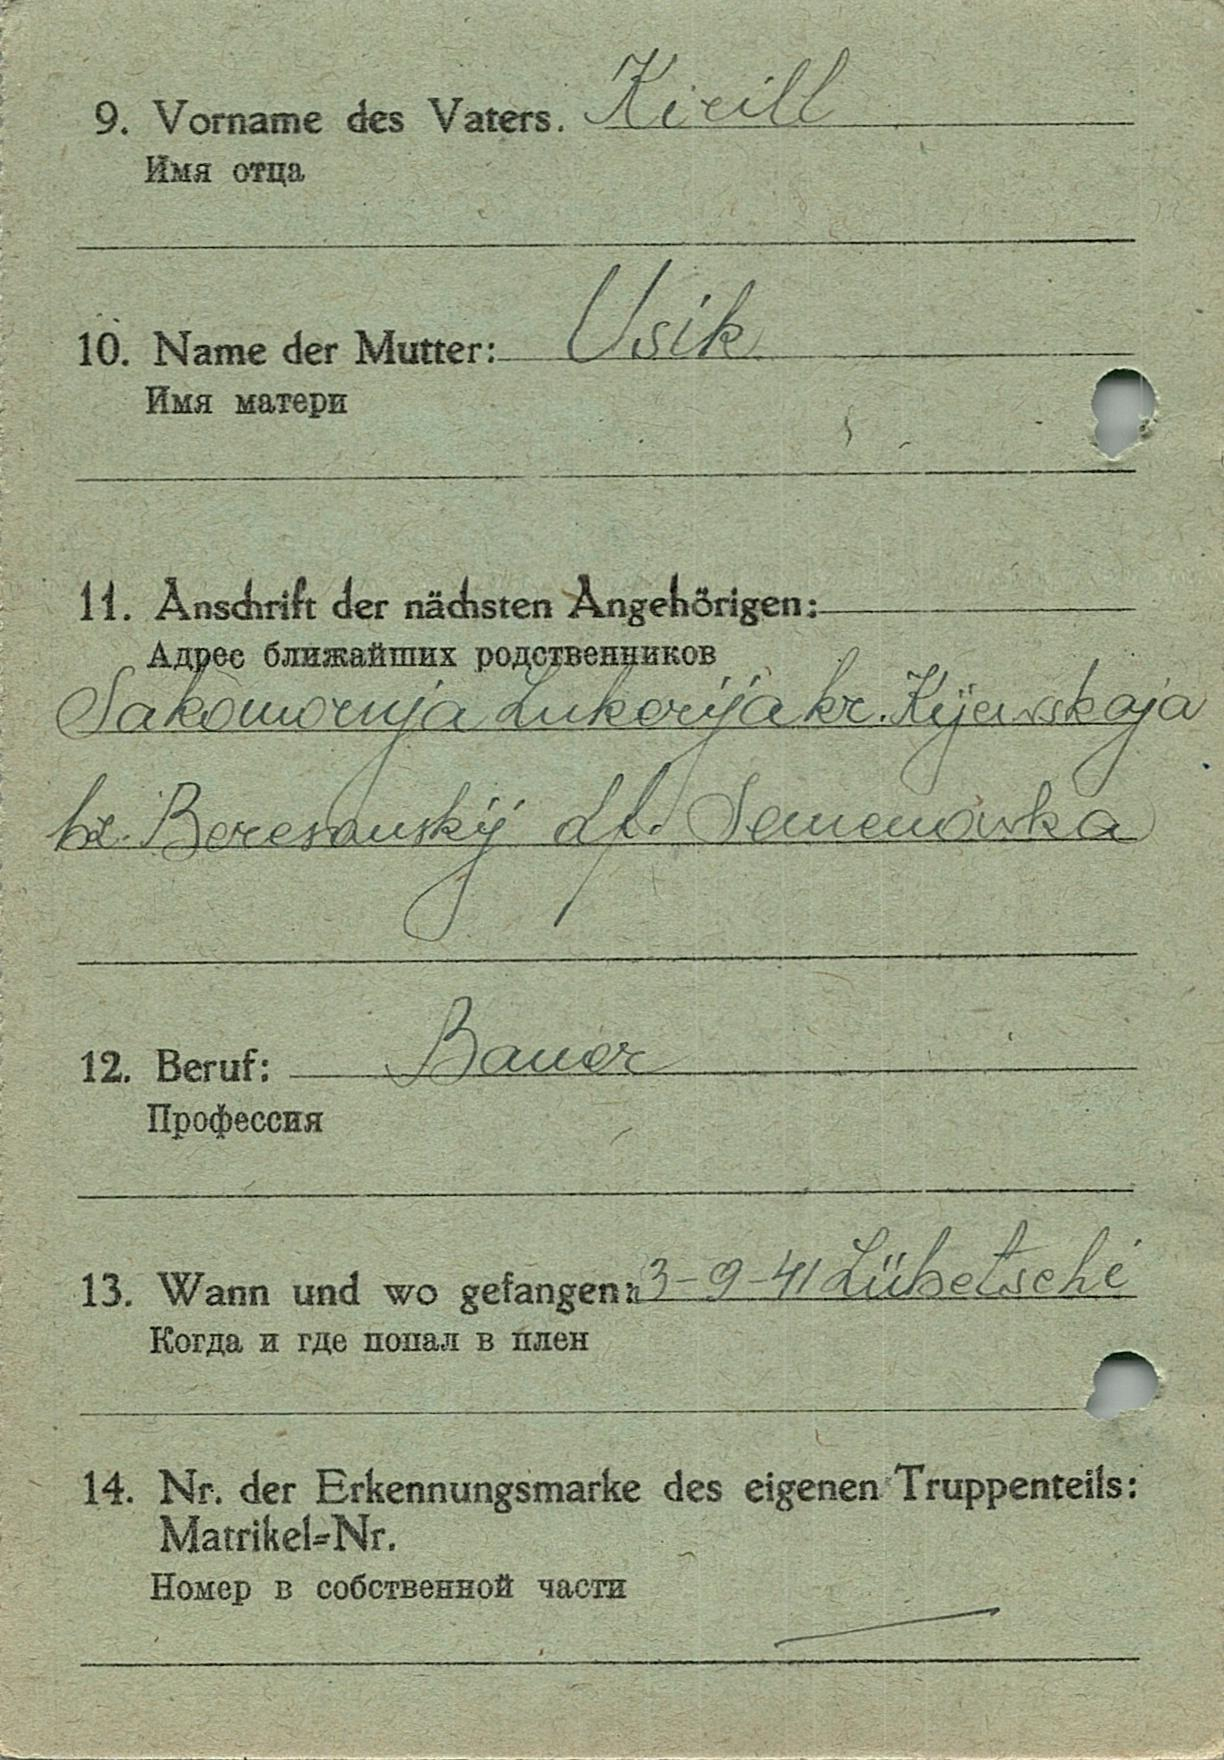 9. Vorname des Vaters. Kirill
Имя отца
10. Name der Mutter: Usik
Имя матери
11. Anschrift der nächsten Angehörigen:
Адрес ближайших родственников
Sakomornja Lukerija kr. Kijewskaja
br. Beresanskij df. Semenowka
12. Beruf: Bauer
Профессия
13. Wann und wo gefangen: 3-9-41 Lübetsche
Когда и где попал в плен
14. Nr. der Erkennungsmarke des eigenen Truppenteils:
Matrikel=Nr.
Номер в собственной части